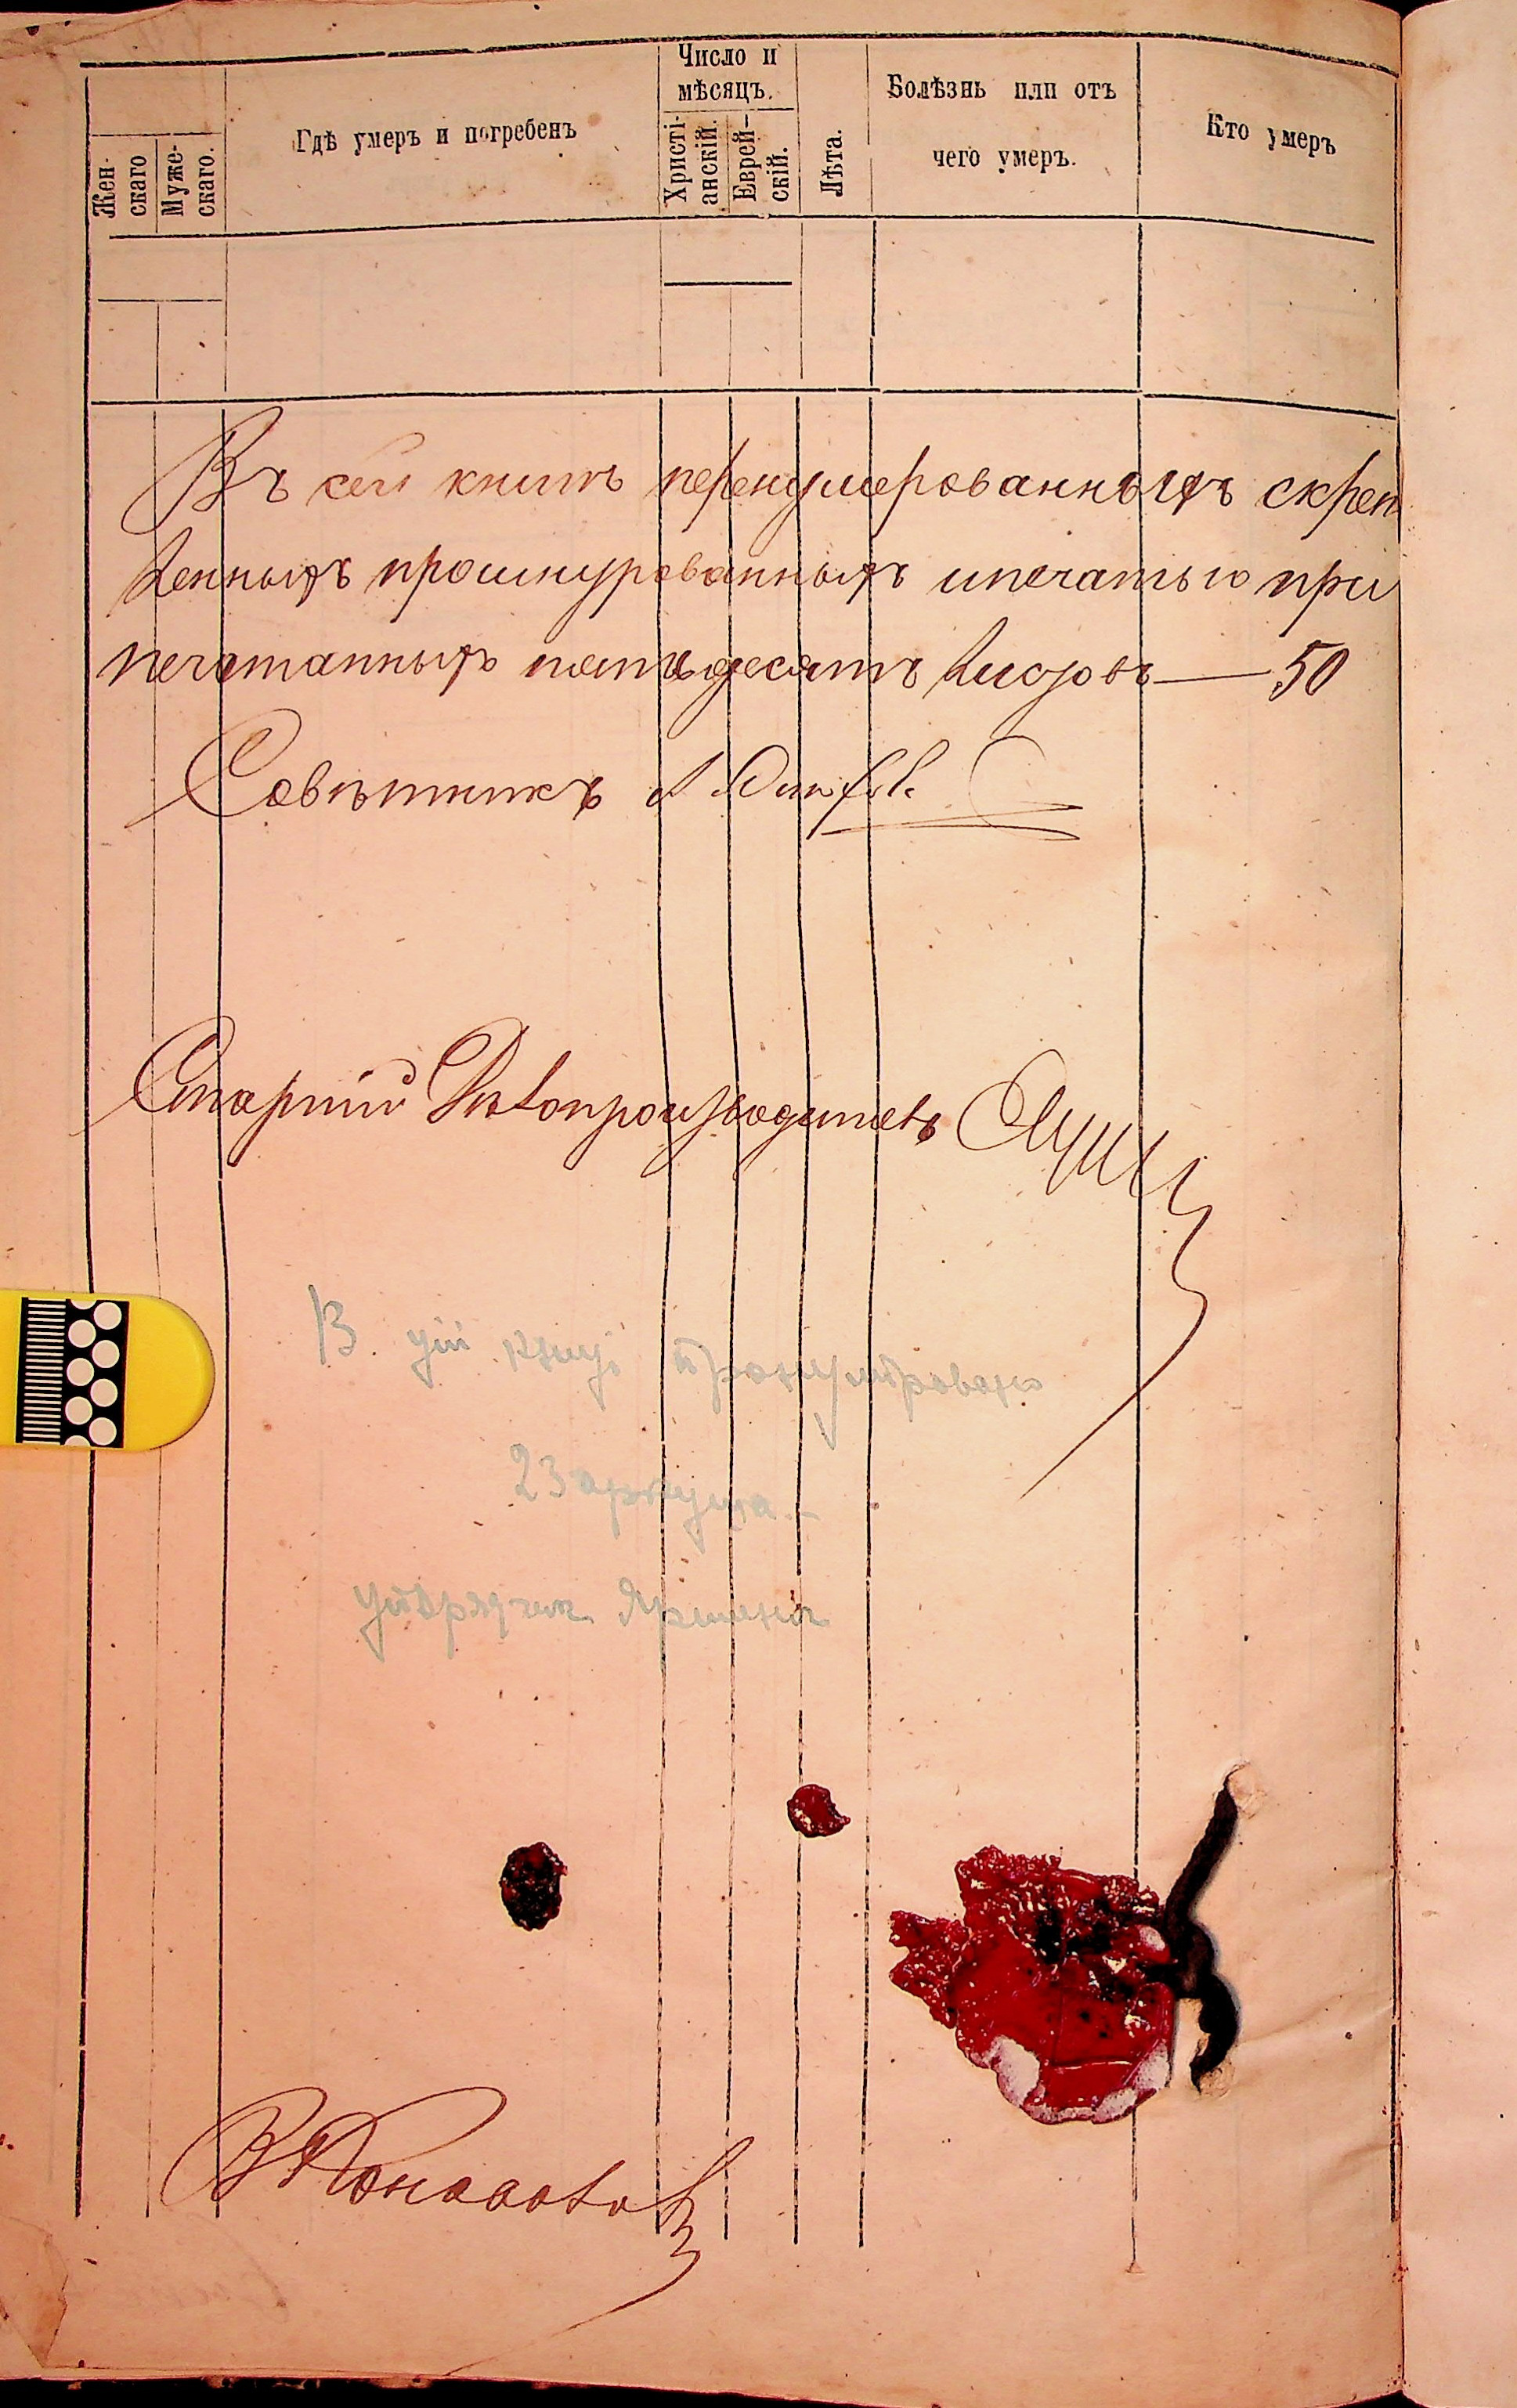 Жен-
скаго
Муже-
скаго.
Гдѣ умеръ и погребенъ
Число и
мѣсяцъ.
Христі-
анскій.
Еврей-
скій.
Лѣта.
Болѣзнь или отъ
чего умеръ.
Кто умеръ
Въ сей книгѣ перенумерованныхъ скреп
ленныхъ прошнурованныхъ и печатью при
печатанныхъ пятьдесятъ листовъ — 50
Совѣтникъ
Старшій Дѣлопроизводитель
В цій книзі пронумеровано
23 аркуша.-